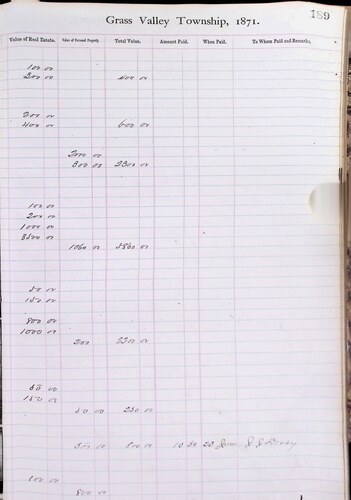 189
Grass Valley Township, 1871.
Value of Real Estate. Value of Personal Property. Total Value. Amount Paid. When Paid. To Whom Paid and Remarks.
100 00
300 00 400 00
200 00
400 00 600 00
2000 00
300 00 2300 00
100 00
200 00
1000 00
1060 00
50 00
150 00
800 00
1000 00
200 2200 00
50 00
150 00
50 00 250 00
800 00 800 00
800 00